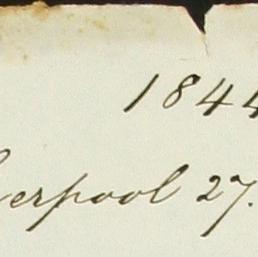 1844
erpool 27.